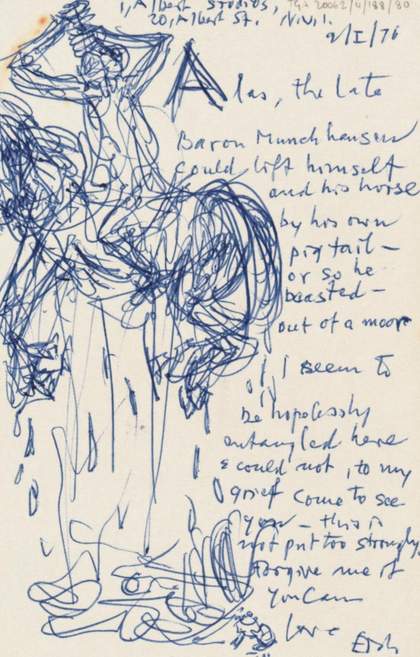 1, Albert Studios, TGA 20062/4/188/80
20, Albert St. N.W.1.
2/I/76
Alas, the late
Baron Munchhausen
could lift himself
and his horse
by his own
pigtail –
or so he
boasted –
out of a moor
I seem to
be hopelessly
entangled here
& could not, to my
grief come to see
you – this is
not put too strongly,
forgive me if
you can
love